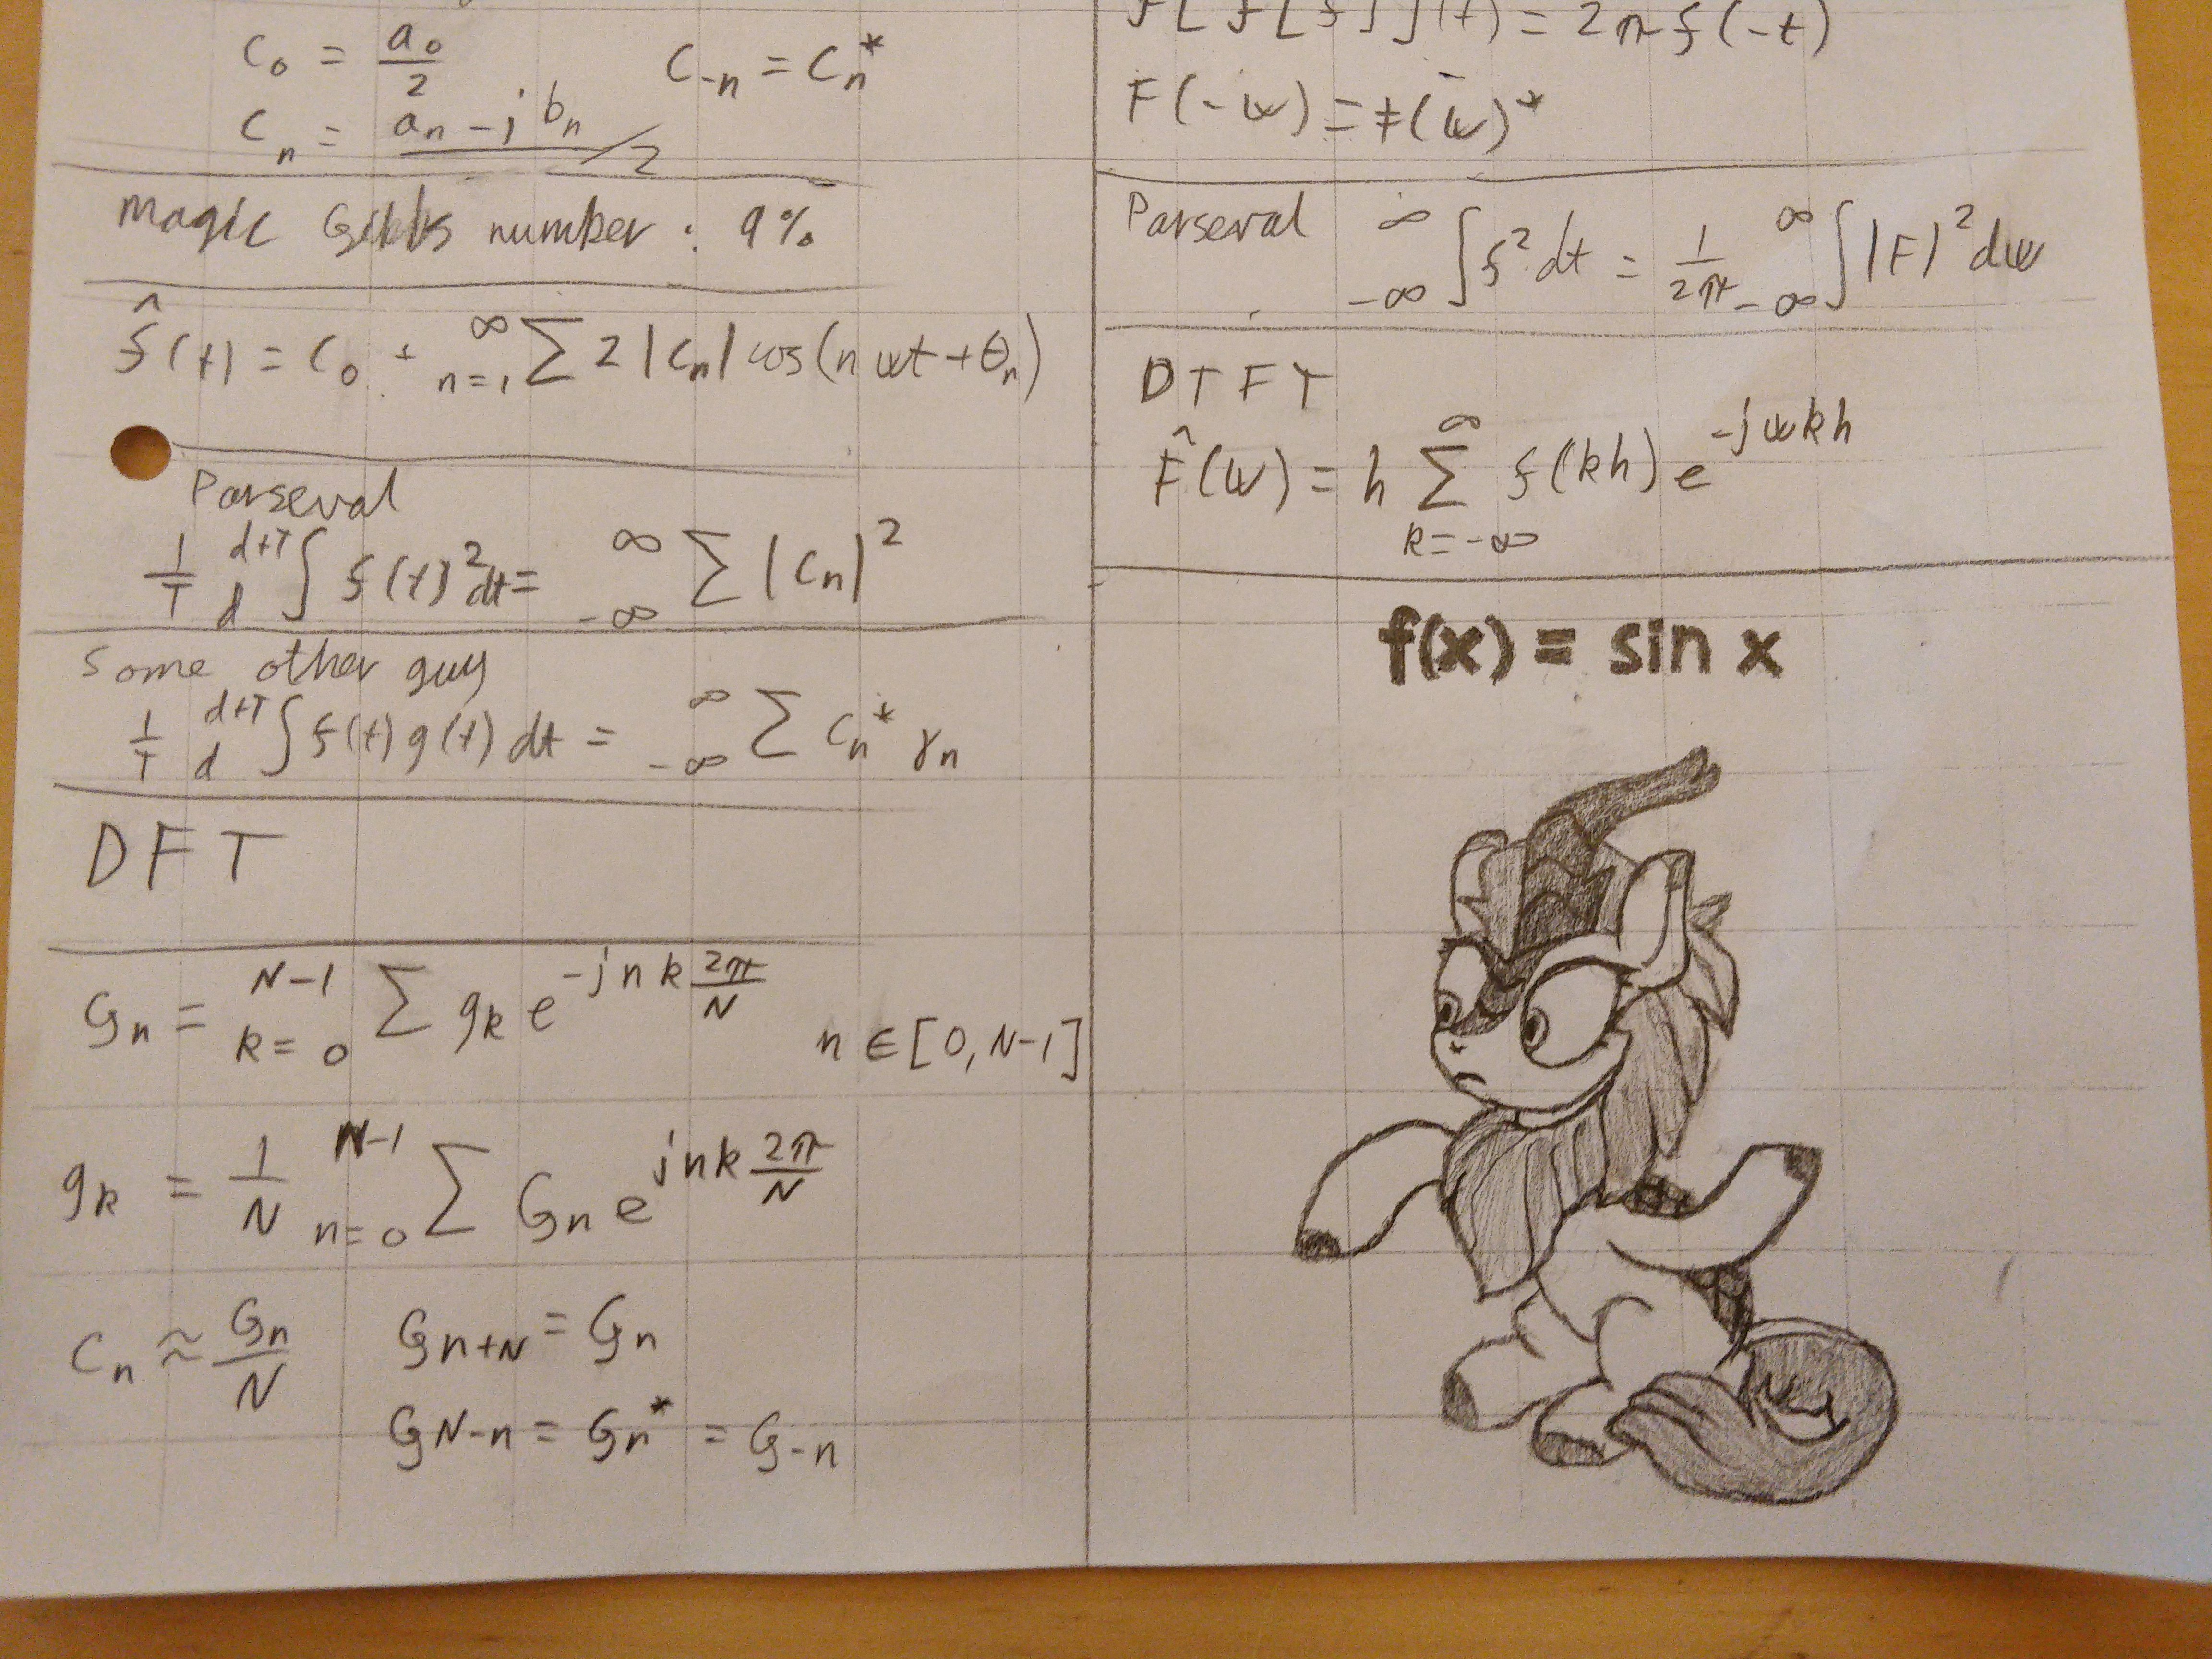 c₀ = a₀/2    c₋ₙ = cₙ*
cₙ = (aₙ - j bₙ)/2
magic Gibbs number : 9%
f̂(t) = c₀ + ∞ n=1 Σ 2|cₙ| cos(nωt + θₙ)
Parseval
1/T d+T d ∫ f(t)² dt = ∞ -∞ Σ |cₙ|²
Some other guy
1/T d+T d ∫ f(t) g(t) dt = ∞ -∞ Σ cₙ* γₙ
DFT
Gₙ = N-1 k=0 Σ gₖ e^(-jnk 2π/N)    n ∈ [0, N-1]
gₖ = 1/N N-1 n=0 Σ Gₙ e^(jnk 2π/N)
cₙ ≈ Gₙ/N    Gn+N = Gₙ
GN-n = Gₙ* = G-n
F[F[f]](t) = 2π f(-t)
F(-ω) = F(ω)*
Parseval ∞ -∞ ∫ f² dt = 1/2π ∞ -∞ ∫ |F|² dω
DTFT
F̂(ω) = h ∞ Σ k=-∞ f(kh) e^(-jωkh)
f(x) = sin x